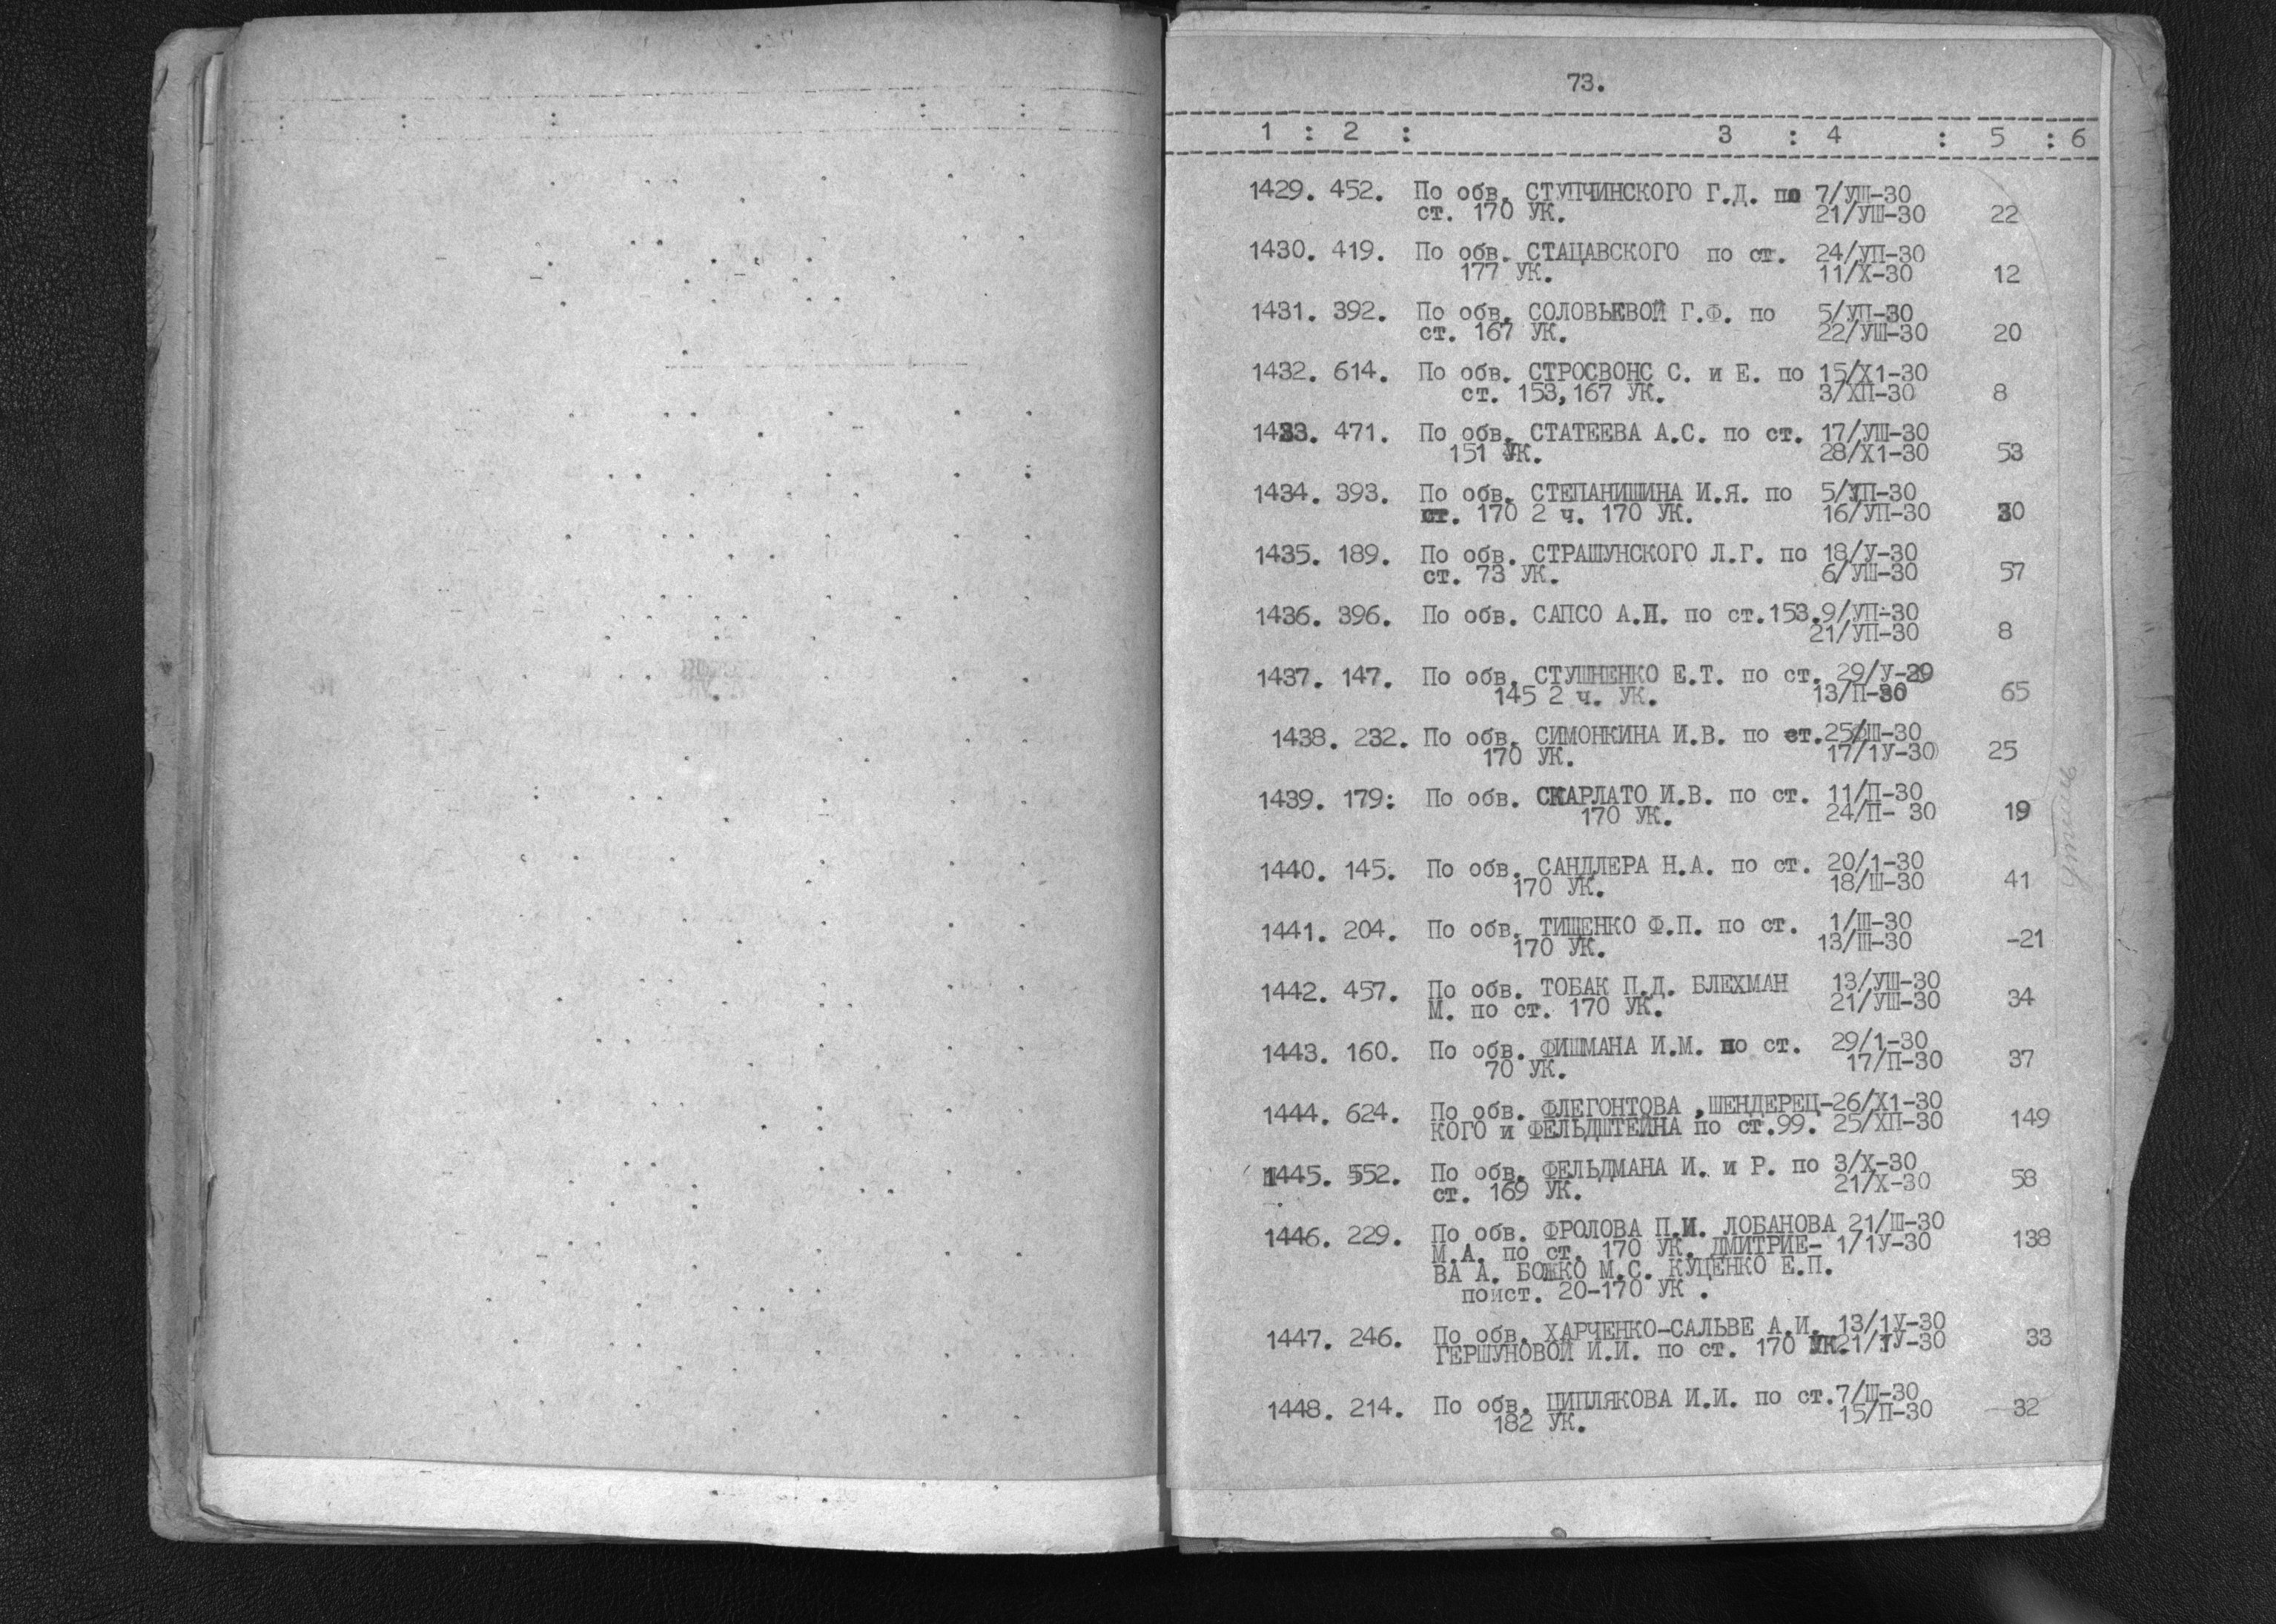 73.
1 : 2 : 3 : 4 : 5 : 6
1429. 452. По обв. СТУПЧИНСКОГО Г.Д. по 7/УШ-30
ст. 170 УК. 21/УШ-30 22
1430. 419. По обв. СТАЦАВСКОГО по ст. 24/УП-30
177 УК. 11/Х-30 12
1431. 392. По обв. СОЛОВЬЕВОЙ Г.Ф. по 5/УП-30
ст. 167 УК. 22/УШ-30 20
1432. 614. По обв. СТРОСВОНС С. и Е. по 15/Х1-30
ст. 153,167 УК. 3/ХП-30 8
1433. 471. По обв. СТАТЕЕВА А.С. по ст. 17/УШ-30
151 УК. 28/Х1-30 53
1434. 393. По обв. СТЕПАНИШИНА И.Я. по 5/УП-30
ст. 170 2 ч. 170 УК. 16/УП-30 30
1435. 189. По обв. СТРАШУНСКОГО Л.Г. по 18/У-30
ст. 73 УК. 6/УШ-30 57
1436. 396. По обв. САПСО А.И. по ст.153.9/УП-30
21/УП-30 8
1437. 147. По обв. СТУШНЕНКО Е.Т. по ст. 29/У-29
145 2 ч. УК. 13/П-30 65
1438. 232. По обв. СИМОНКИНА И.В. по ст.25/Ш-30
170 УК. 17/1У-30 25
1439. 179: По обв. СКАРЛАТО И.В. по ст. 11/П-30
170 УК. 24/П- 30 19
1440. 145. По обв. САНДЛЕРА Н.А. по ст. 20/1-30
170 УК. 18/Ш-30 41
1441. 204. По обв. ТИЩЕНКО Ф.П. по ст. 1/Ш-30
170 УК. 13/Ш-30 -21
1442. 457. По обв. ТОБАК П.Д. БЛЕХМАН 13/УШ-30
М. по ст. 170 УК. 21/УШ-30 34
1443. 160. По обв. ФИШМАНА И.М. по ст. 29/1-30
70 УК. 17/П-30 37
1444. 624. По обв. ФЛЕГОНТОВА ,ШЕНДЕРЕЦ-26/Х1-30
КОГО и ФЕЛЬДШТЕЙНА по ст.99. 25/ХП-30 149
1445. 552. По обв. ФЕЛЬДМАНА И. и Р. по 3/Х-30
ст. 169 УК. 21/Х-30 58
1446. 229. По обв. ФРОЛОВА П.И. ЛОБАНОВА 21/Ш-30
М.А. по ст. 170 УК. ДМИТРИЕ- 1/1У-30 138
ВА А. БОЖКО М.С. КУЦЕНКО Е.П.
поист. 20-170 УК .
1447. 246. По обв. ХАРЧЕНКО-САЛЬВЕ А.И. 13/1У-30
ГЕРШУНОВОЙ И.И. по ст. 170 УК.21/1У-30 33
1448. 214. По обв. ЦИПЛЯКОВА И.И. по ст.7/Ш-30
182 УК. 15/П-30 -32